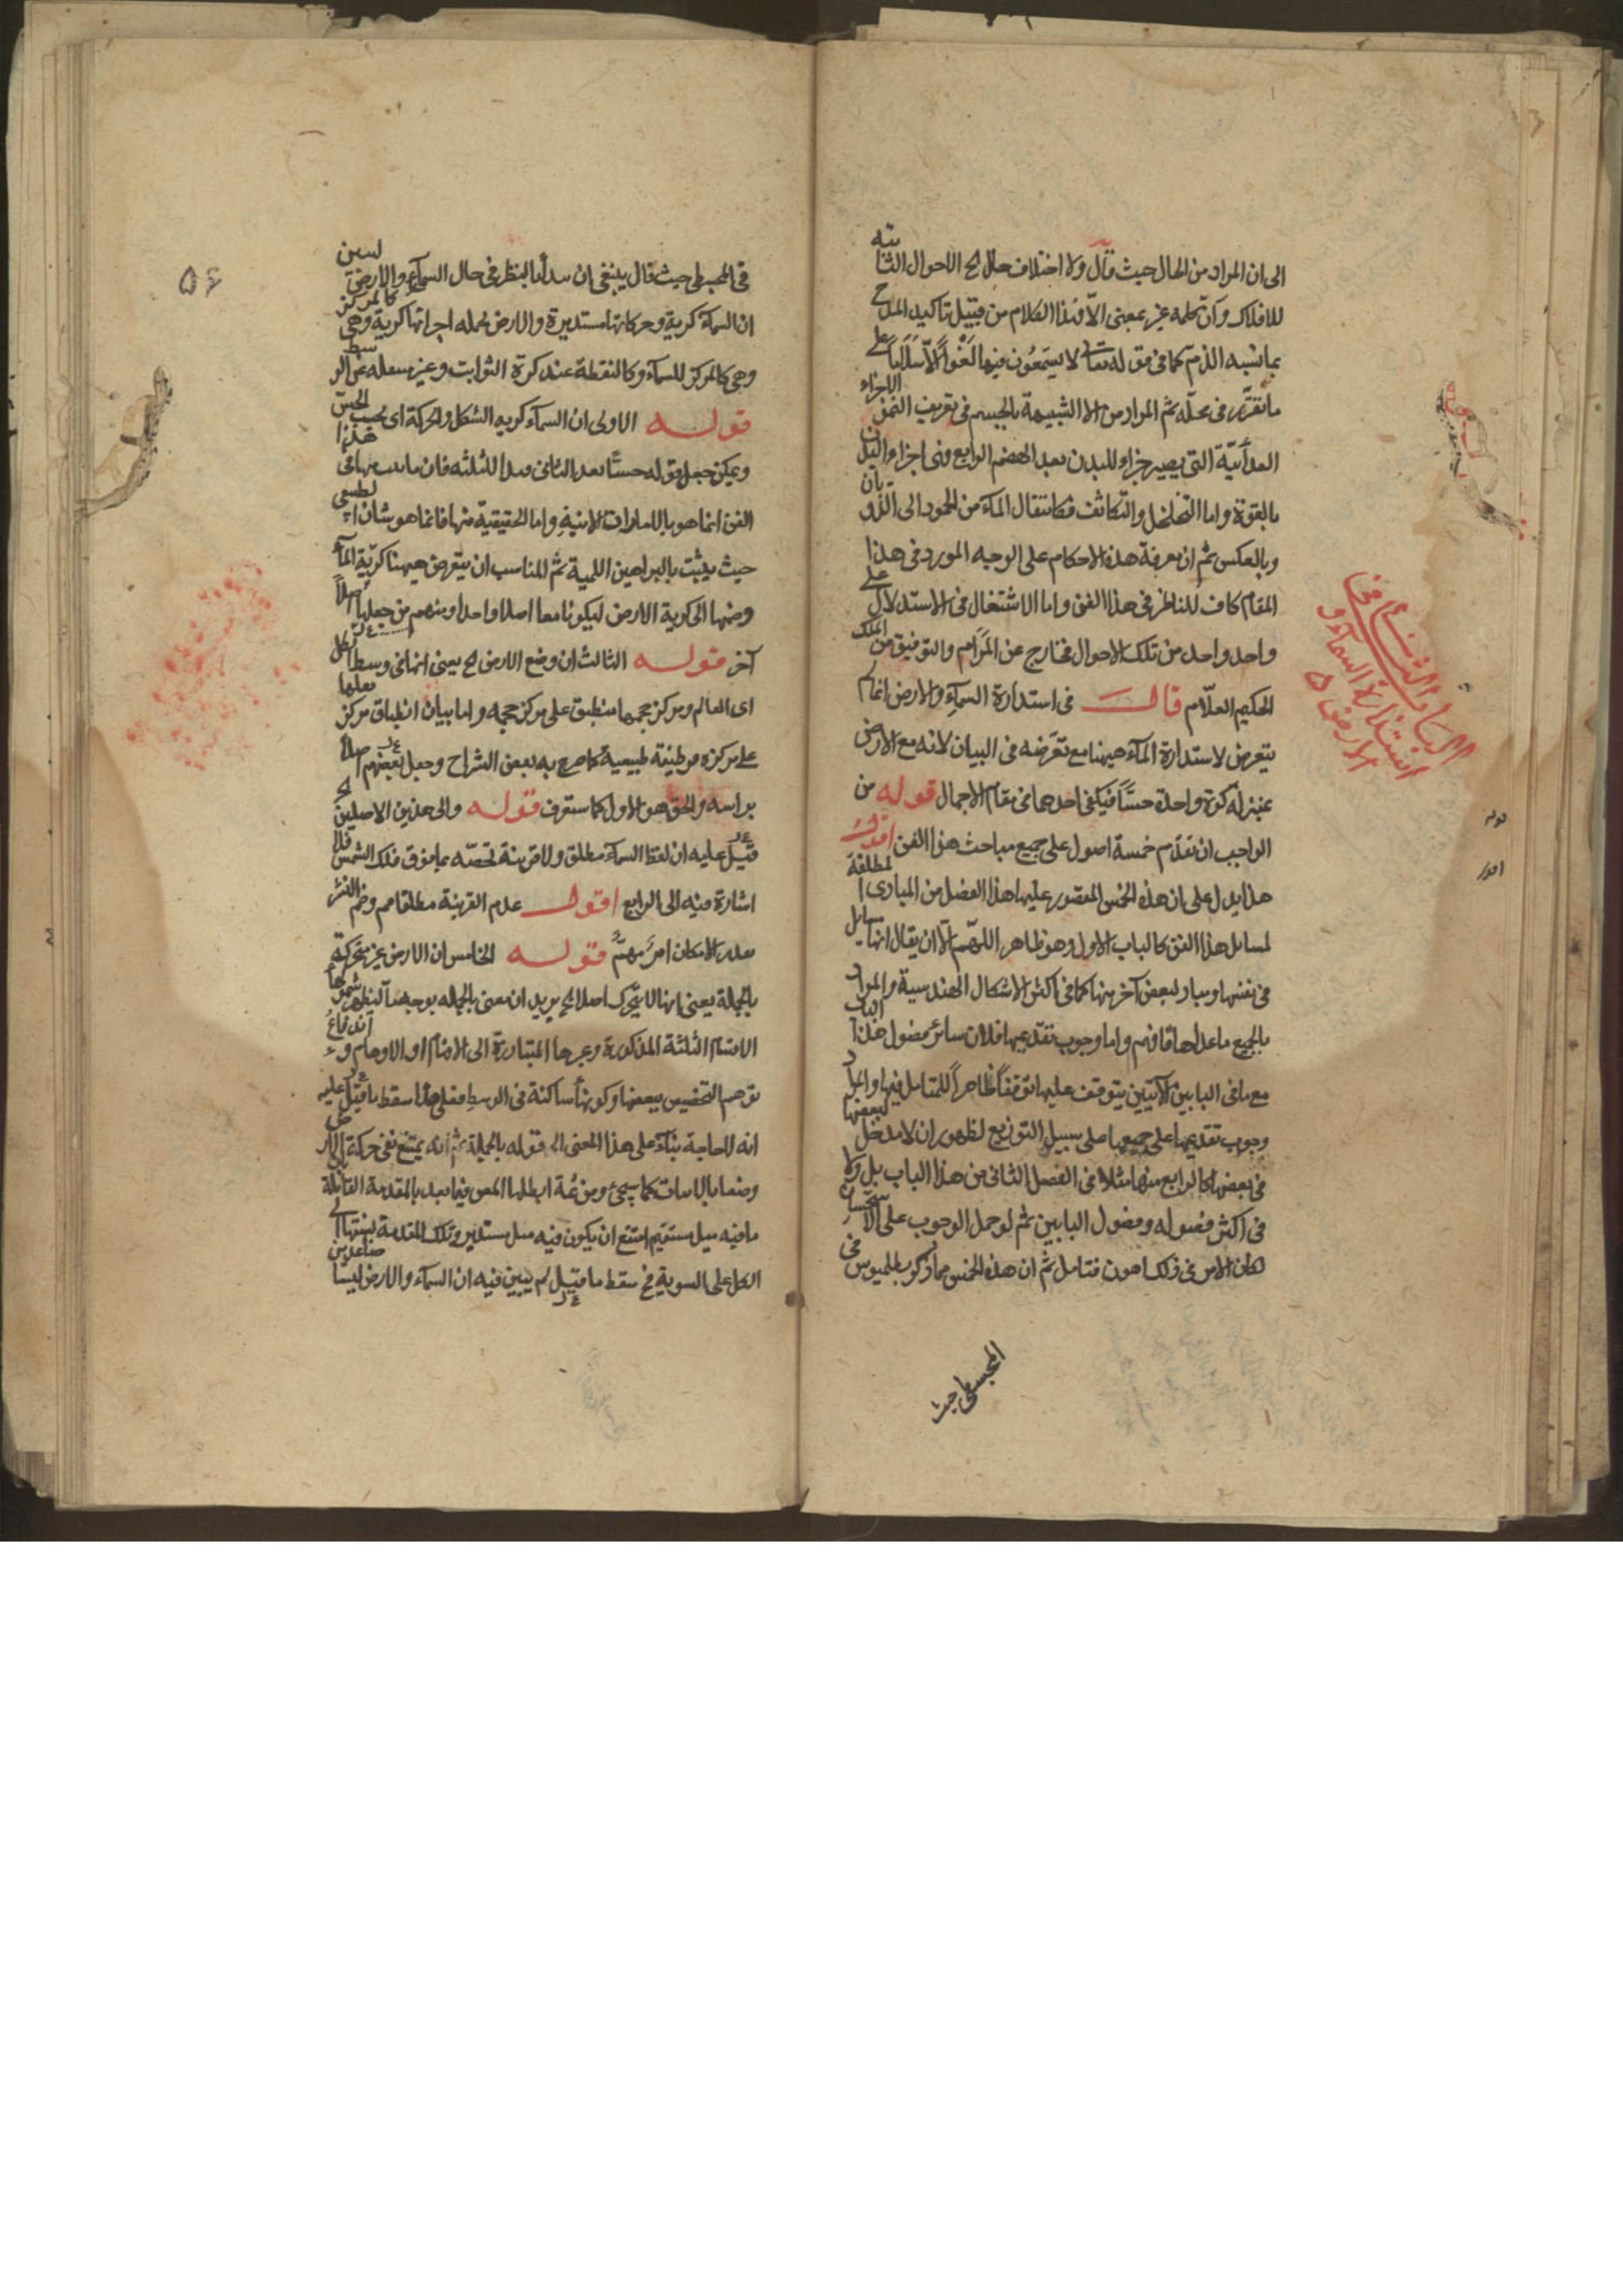 الى ان المراد من الحال حيث قال ولا اختلاف حال لح الاحوال الثابتة
للافلاك وان كلمة غير بمعنى الا فهذا الكلام من قبيل تاكيد المدح
بما يشبه الذم كما في قوله تعالى لا يسمعون فيها لغوا الا سلاما على
ما تقرر في محله ثم المراد من الاجزاء الشبيهة بالجسم في تعريف النمو
الغذائية التي يصير جزء للبدن بعد الهضم الرابع فهي اجزاء البدن
بالقوة واما التخلخل والتكاثف فكانتقال الماء من الجمود الى الذوبان
وبالعكس ثم ان معرفة هذه الاحكام على الوجه المورد في هذا
المقام كاف للناظر في هذا الفن واما الاشتغال في الاستدلال على
واحد واحد من تلك الاحوال فخارج عن المرام والتوفيق من الملك
الحكيم العلام قال في استدارة السماء والارض انما لم
يتعرض لاستدارة الماء ههنا مع تعرضه في البيان لانه مع الارض
بمنزلة كرة واحدة حسا فيكفي احدهما في مقام الاجمال قوله من
الواجب ان نقدم خمسة اصول على جميع مباحث هذا الفن اقول
هذا يدل على ان هذه الخمس المقصور عليها هذا الفصل من المبادى المطلقة
لمسائل هذا الفن كالباب الاول وهو ظاهر اللهم الا ان يقال انها مسايل
في نفسها ومباد لبعض آخر منها كما في اكثر الاشكال الهندسية والمراد
بالجميع ما عداها فافهم واما وجوب تقديمها فلان سائر فصول هذا الباب
مع ما في البابين الآتيين يتوقف عليها توقفا ظاهرا للمتامل فيها والمراد
وجوب تقديمها على جميعها على سبيل التوزيع لظهور ان لا مدخل لبعضها
في بعضها كالرابع منها مثلا في الفصل الثاني من هذا الباب بل ولا
في اكثر فصوله وفصول البابين ثم لو حمل الوجوب على الاستحسان
لكان الامر في ذلك اهون فتامل ثم ان هذه الخمس مما ذكره بطلميوس في
المجسطي حيث
الباب الثاني في
استدارة السماء و
الارض
قوله
اقول
۵۶
في المجسطي حيث قال ينبغي ان نبدأ بالنظر في حال السماء والارض لنبين
ان السماء كرية وحركاتها مستديرة والارض بجملة اجزائها كرية وهي كالمركز
وهي كالمركز للسماء وكالنقطة عند كرة الثوابت وغير منتقلة عن الوسط
قوله الاولى ان السماء كرية الشكل والحركة اى بحسب الحس
ويمكن جعل قوله حسا بعد الثاني قيدا للثلثة فان ما يثبت منها في هذا
الفن انما هو بالامارات الانية واما الحقيقية منها فانما هو شان الطبيعي
حيث يثبت بالبراهين اللمية ثم المناسب ان يتعرض ههنا كرية الماء
وضمها الى كرية الارض ليكونا معا اصلا واحدا ومنهم من جعلها اصلا
آخر قوله الثالث ان وضع الارض لح يعنى انها في وسط الكل
اى العالم ومركز حجمها منطبق على مركز حجمه واما بيان انطباق مركز ثقلها
على مركزه فوظيفة طبيعية كما صرح به بعض الشراح وجعل بعضهم اصلا
براسه والحق هو الاول كما ستعرف قوله والى هذين الاصلين لح
قيل عليه ان لفظ السماء مطلق ولا قرينة تخصه بما فوق فلك الشمس فلا
اشارة فيه الى الرابع اقول عدم القرينة مطلقا مم وضم النشر
بعدد الامكان امر مهم قوله الخامس ان الارض غير متحركة
بالجملة يعنى انها لا يتحرك اصلا لح يريد ان معنى بالجملة بوجهها ليظهر شمولها
الاقسام الثلثة المذكورة وغيرها المتبادرة الى الافهام او الاوهام واندفاع
توهم التخصيص ببعضها وكونها ساكنة في الوسط فعلى هذا سقط ما قيل عليه
انه لا حاجة بناء على هذا المعنى الى قوله بالجملة ثم انه يمتنع نفى حركة الارض
ما فيه ميل مستقيم امتنع ان يكون فيه ميل مستدير وتلك المقدمة ينتهى الى
الكل على السوية فح سقط ما قيل لم يبين فيه ان السماء والارض ليسا صاعدين